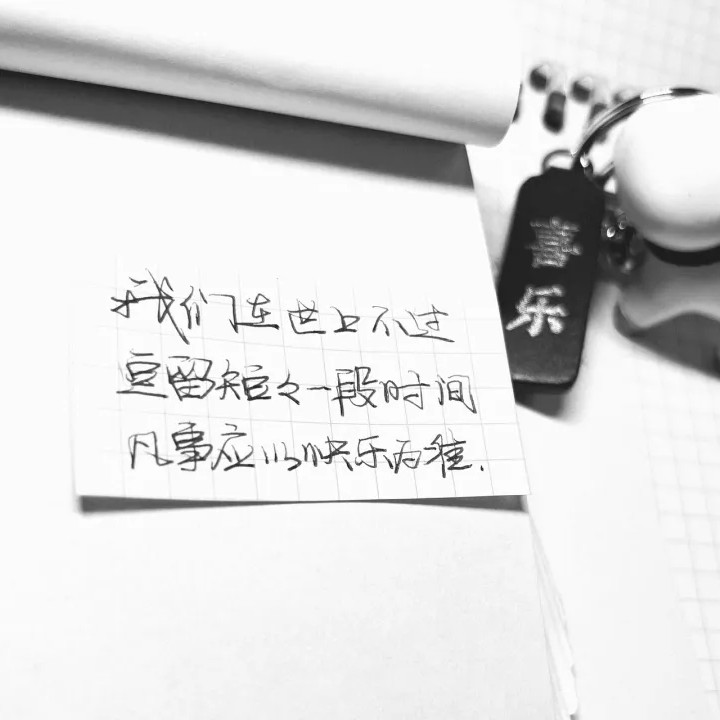 我们在世上不过
逗留短短一段时间
凡事应以快乐为准.
喜乐